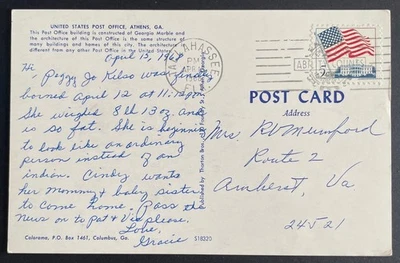 UNITED STATES POST OFFICE, ATHENS, GA.
This Post Office building is constructed of Georgia Marble and
the architecture of this Post Office is the same structure of
many buildings and homes of this city. The architecture is
different from any other Post Office in the United States.
April 13, 1968
Hi
Peggy Jo Kelso was finally
borned April 12 at 11:12pm.
She weighed 8 lb 13 oz and
is so fat. She is beginning
to look like an ordinary
person instead of an
indian. Cindy wants
her Mommy & baby sister
to come home. Pass the
news on to Pat & Vic please.
Love,
Gracie
Colorama, P.O. Box 1461, Columbus, Ga.
S18320
Published by Thurston Bros.
TALLAHASSEE
PM
APR
POST CARD
Address
Mrs RV Mumford
Route 2
Amherst, Va
24521